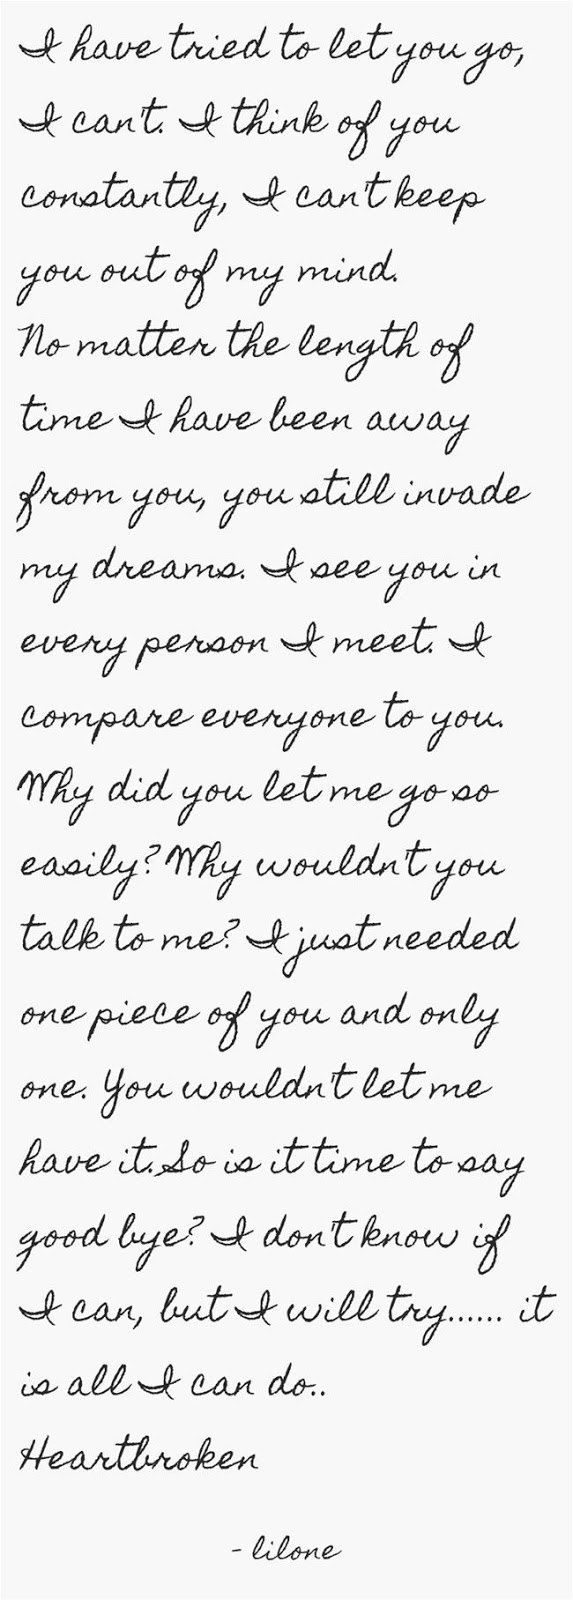 I have tried to let you go,
I can't. I think of you
constantly, I can't keep
you out of my mind.
No matter the length of
time I have been away
from you, you still invade
my dreams. I see you in
every person I meet. I
compare everyone to you.
Why did you let me go so
easily? Why wouldn't you
talk to me? I just needed
one piece of you and only
one. You wouldn't let me
have it. So is it time to say
good bye? I don't know if
I can, but I will try...... it
is all I can do..
Heartbroken
- lilone